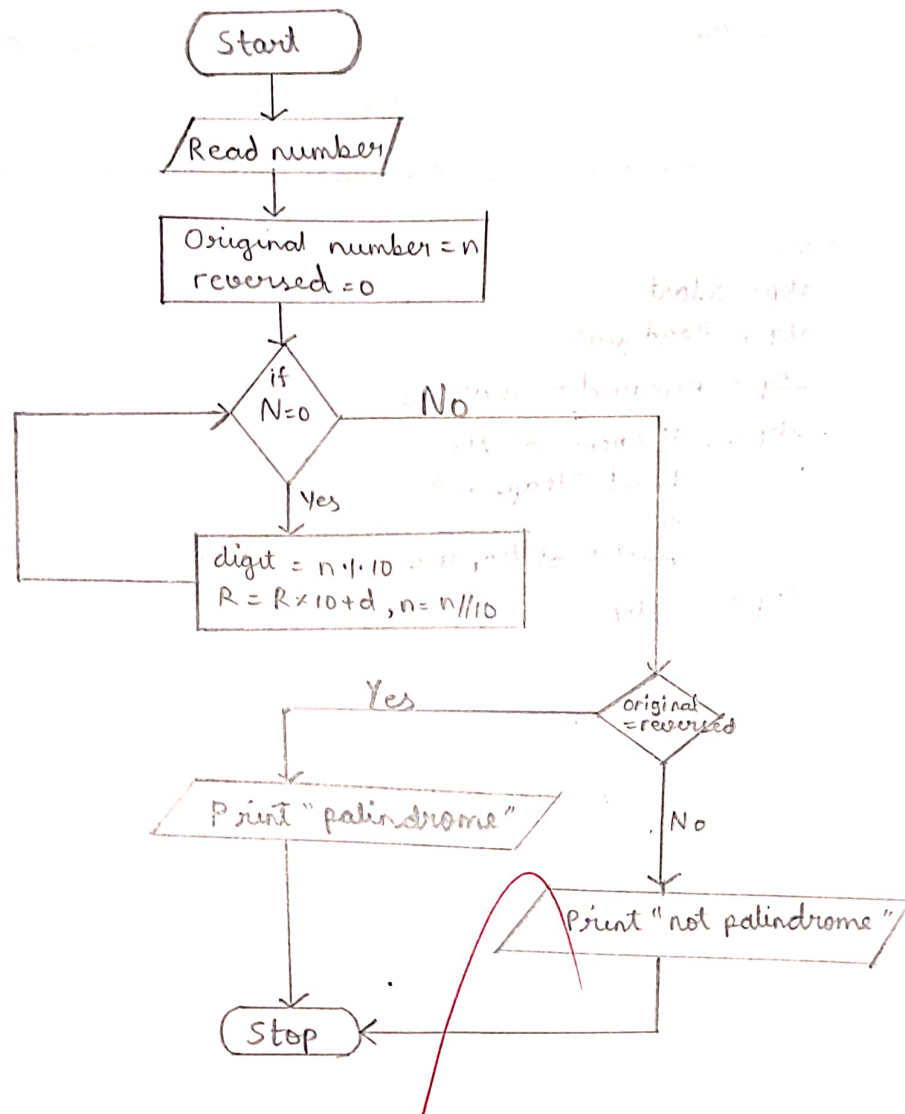 Start
Read number
Original number = n
reversed = 0
if
N=0
No
Yes
digit = n % 10
R = R × 10 + d, n = n // 10
original
= reversed
Yes
Print "palindrome"
No
Print "not palindrome"
Stop